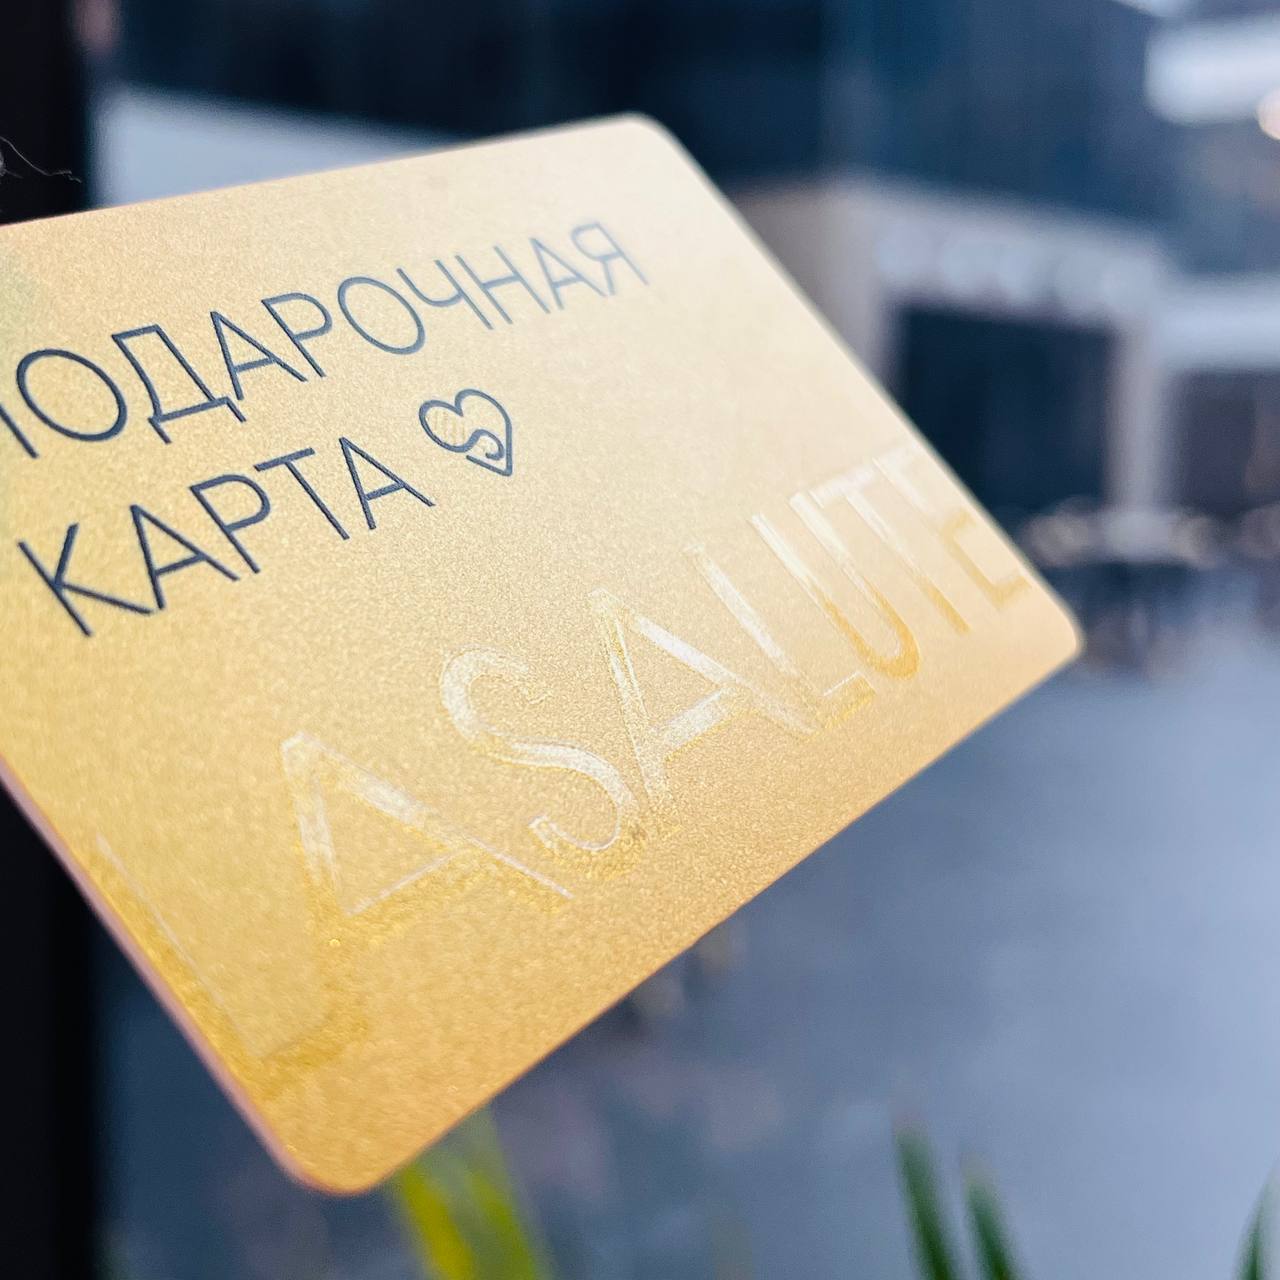 ПОДАРОЧНАЯ
КАРТА
LASALUTE